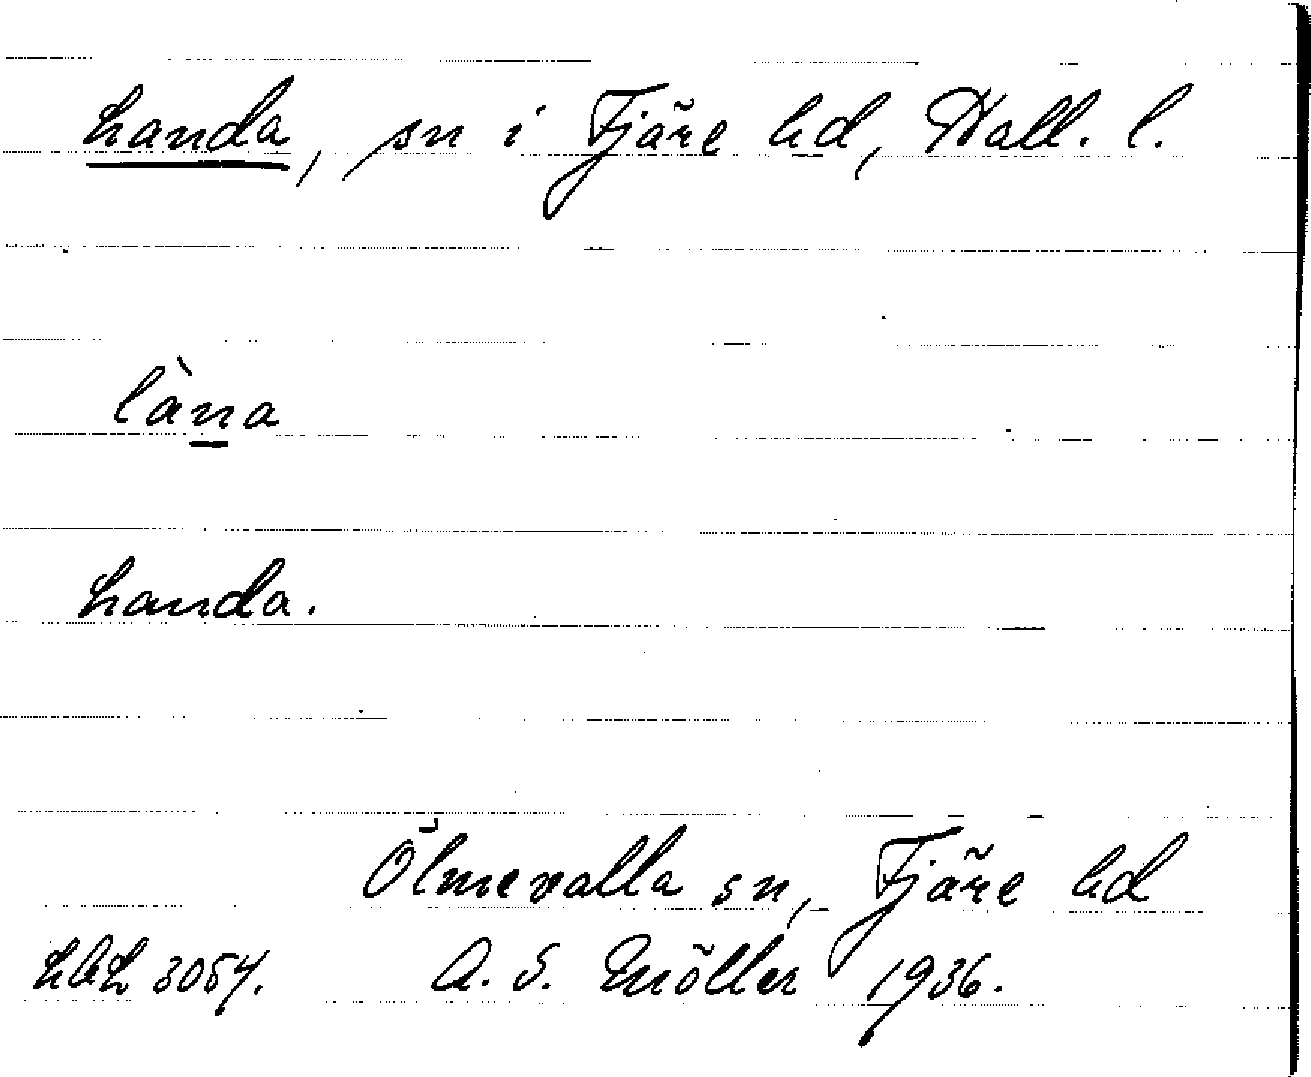 Landa, sn i Fjäre hd, Hall. l.
làna
Landa.
Ölmevalla sn, Fjäre hd
LAL 3054. A. S. Möller 1936.